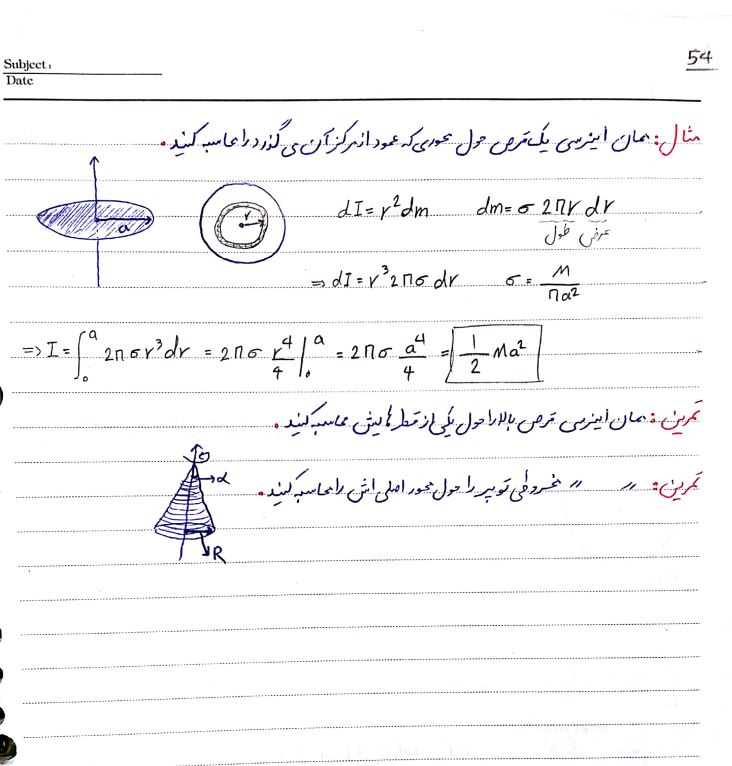 54
Subject:
Date
مثال: ممان اینرسی یک قرص حول محوری که عمود از مرکز آن می گذرد را محاسبه کنید.
a
r
dI = r²dm dm = σ 2πr dr
طول عرض
⇒ dI = r³2πσ dr σ = M/πa²
=> I = ∫₀ᵃ 2πσr³dr = 2πσ r⁴/4 |₀ᵃ = 2πσ a⁴/4 = 1/2 Ma²
تمرین: ممان اینرسی قرص بالا را حول یکی از قطرهایش محاسبه کنید.
تمرین: " " مخروطی توپر را حول محور اصلی اش را محاسبه کنید.
α
R